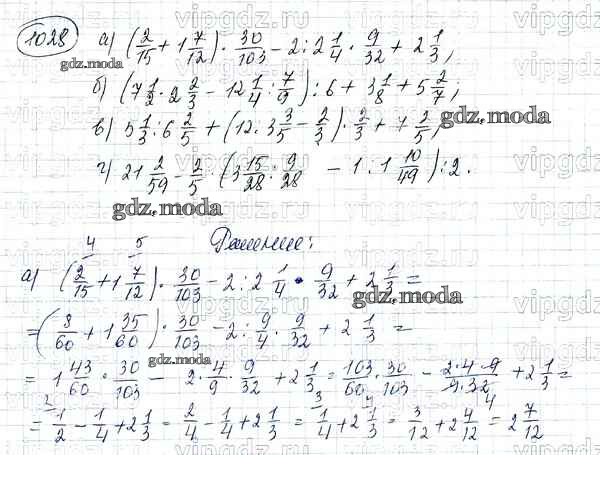 1028
а) (2/15 + 1 7/12) · 30/103 − 2 : 2 1/4 · 9/32 + 2 1/3;
gdz.moda
б) (7 1/2 · 2 2/3 − 12 1/4 : 7/9) : 6 + 3 1/8 + 5 2/7;
в) 5 1/3 : 6 2/5 + (12 : 3 3/5 − 2/3) · 2/3 + 7 2/5;
gdz.moda
г) 21 2/59 − 2/5 · (3 15/28 : 9/28 − 1 : 1 10/49) : 2.
gdz.moda
Решение:
4 5
а) (2/15 + 1 7/12) · 30/103 − 2 : 2 1/4 · 9/32 + 2 1/3 =
gdz.moda
= (8/60 + 1 35/60) · 30/103 − 2 : 9/4 · 9/32 + 2 1/3 =
gdz.moda
= 1 43/60 · 30/103 − 2 · 4/9 · 9/32 + 2 1/3 = 103 · 30/60 · 103 − 2 · 4 · 9/9 · 32 + 2 1/3 =
2 3 4 4
= 1/2 − 1/4 + 2 1/3 = 2/4 − 1/4 + 2 1/3 = 1/4 + 2 1/3 = 3/12 + 2 4/12 = 2 7/12
vipgdz.ru